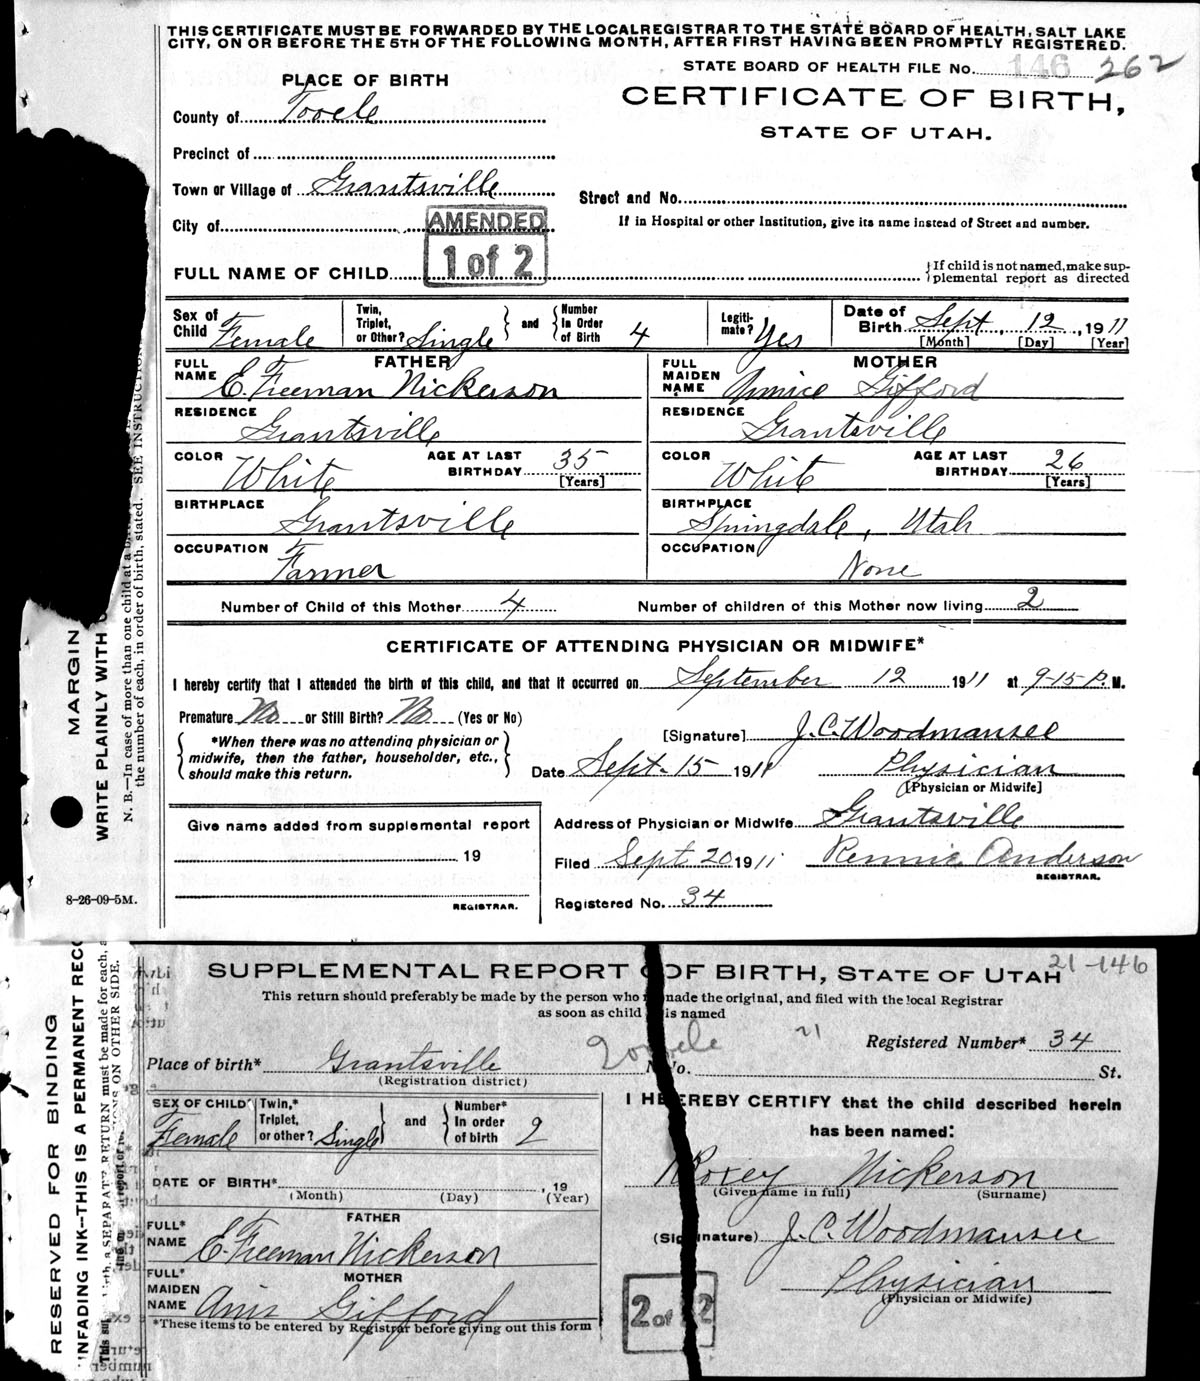 THIS CERTIFICATE MUST BE FORWARDED BY THE LOCAL REGISTRAR TO THE STATE BOARD OF HEALTH, SALT LAKE
CITY, ON OR BEFORE THE 5TH OF THE FOLLOWING MONTH, AFTER FIRST HAVING BEEN PROMPTLY REGISTERED.
STATE BOARD OF HEALTH FILE No. 146 262
PLACE OF BIRTH
CERTIFICATE OF BIRTH,
STATE OF UTAH.
County of Tooele
Precinct of
Town or Village of Grantsville
Street and No.
City of
If in Hospital or other Institution, give its name instead of Street and number.
AMENDED
1 of 2
FULL NAME OF CHILD
{If child is not named, make sup-
plemental report as directed
Sex of Child Female
Twin, Triplet, or Other? Single
and
Number In Order of Birth 4
Legiti-mate? Yes
Date of Birth Sept. 12, 1911
[Month] [Day] [Year]
FATHER
FULL NAME E. Freeman Nickerson
MOTHER
FULL MAIDEN NAME Annice Gifford
RESIDENCE Grantsville
RESIDENCE Grantsville
COLOR White AGE AT LAST BIRTHDAY 35 [Years]
COLOR White AGE AT LAST BIRTHDAY 26 [Years]
BIRTHPLACE Grantsville
BIRTHPLACE Springdale, Utah
OCCUPATION Farmer
OCCUPATION None
Number of Child of this Mother 4
Number of children of this Mother now living 2
CERTIFICATE OF ATTENDING PHYSICIAN OR MIDWIFE*
I hereby certify that I attended the birth of this child, and that it occurred on September 12 1911 at 9-15 P. M.
Premature No or Still Birth? No (Yes or No)
*When there was no attending physician or
midwife, then the father, householder, etc.,
should make this return.
[Signature] J. C. Woodmansee
Date Sept. 15 1911
Physician
[Physician or Midwife]
Give name added from supplemental report
19
REGISTRAR.
Address of Physician or Midwife Grantsville
Filed Sept 20 1911 Rennie Anderson
REGISTRAR.
Registered No. 34
8-26-09-5M.
MARGIN
WRITE PLAINLY WITH
N. B.—In case of more than one child at a
the number of each, in order of birth, stated. SEE INSTRUCTION
SUPPLEMENTAL REPORT OF BIRTH, STATE OF UTAH
21-146
This return should preferably be made by the person who made the original, and filed with the local Registrar
as soon as child is named
Tooele 21
Registered Number* 34
Place of birth* Grantsville
No. St.
(Registration district)
SEX OF CHILD* Female
Twin,* Triplet, or other? Single
and
Number* In order of birth 2
I HEREBY CERTIFY that the child described herein
has been named:
DATE OF BIRTH* , 19
(Month) (Day) (Year)
Roxey Nickerson
(Given name in full) (Surname)
FATHER
FULL* NAME E. Freeman Nickerson
(Signature) J. C. Woodmansee
MOTHER
FULL* MAIDEN NAME Anis Gifford
Physician
(Physician or Midwife)
2 of 2
*These items to be entered by Registrar before giving out this form
RESERVED FOR BINDING
UNFADING INK--THIS IS A PERMANENT RECO